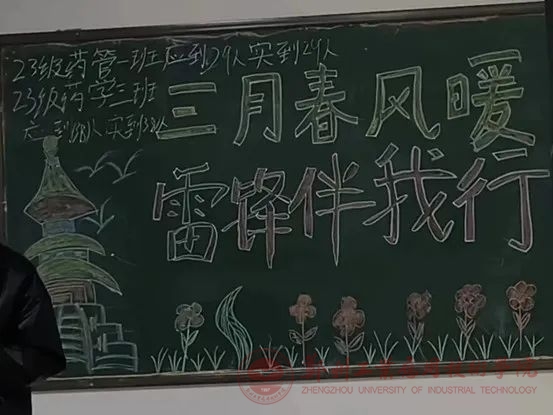 23级药管一班应到29人实到29人
23级药学三班
应到38人实到38人
三月春风暖
雷锋伴我行
ZHENGZHOU UNIVERSITY OF INDUSTRIAL TECHNOLOGY